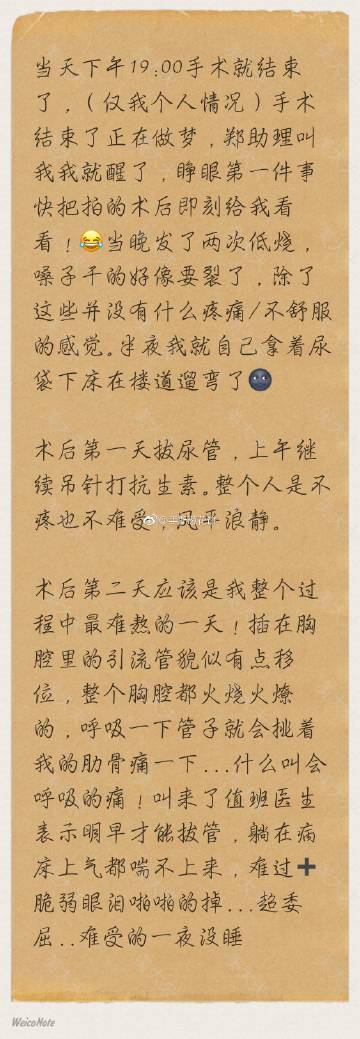 当天下午19:00手术就结束
了，（仅我个人情况）手术
结束了正在做梦，郑助理叫
我我就醒了，睁眼第一件事
快把拍的术后即刻给我看
看！😂当晚发了两次低烧，
嗓子干的好像要裂了，除了
这些并没有什么疼痛/不舒服
的感觉。半夜我就自己拿着尿
袋下床在楼道遛弯了🌚
术后第一天拔尿管，上午继
续吊针打抗生素。整个人是不
疼也不难受，风平浪静。
术后第二天应该是我整个过
程中最难熬的一天！插在胸
腔里的引流管貌似有点移
位，整个胸腔都火烧火燎
的，呼吸一下管子就会挑着
我的肋骨痛一下...什么叫会
呼吸的痛！叫来了值班医生
表示明早才能拔管，躺在病
床上气都喘不上来，难过➕
脆弱眼泪啪啪的掉...超委
屈..难受的一夜没睡
WeicoNote